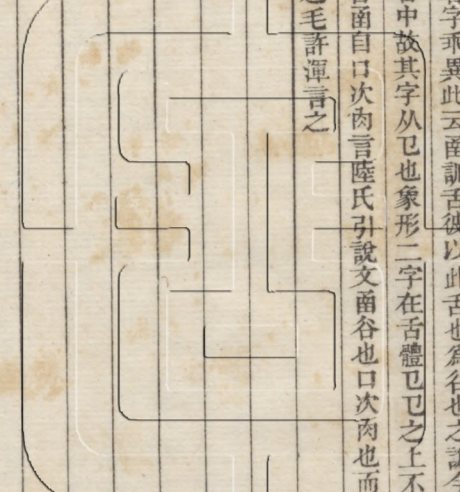 字乖異此云㐁訓舌彼以此舌也為谷也之說今
中故其字从㔾也象形二字在舌體㔾㔾之上不
㐁自口次肉言陸氏引說文㐁谷也口次肉也而
毛許渾言之